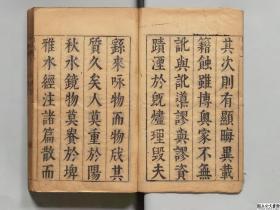 其次則有顯晦異載
籍蝕雖博奥家不無
訛與訛謬與謬
蹟湮於旣燼理毀夫
繇來咏物而物戕其
質久矣人莫重於陽
秋水鏡物莫賾於埤
雅水經注諸篇散而